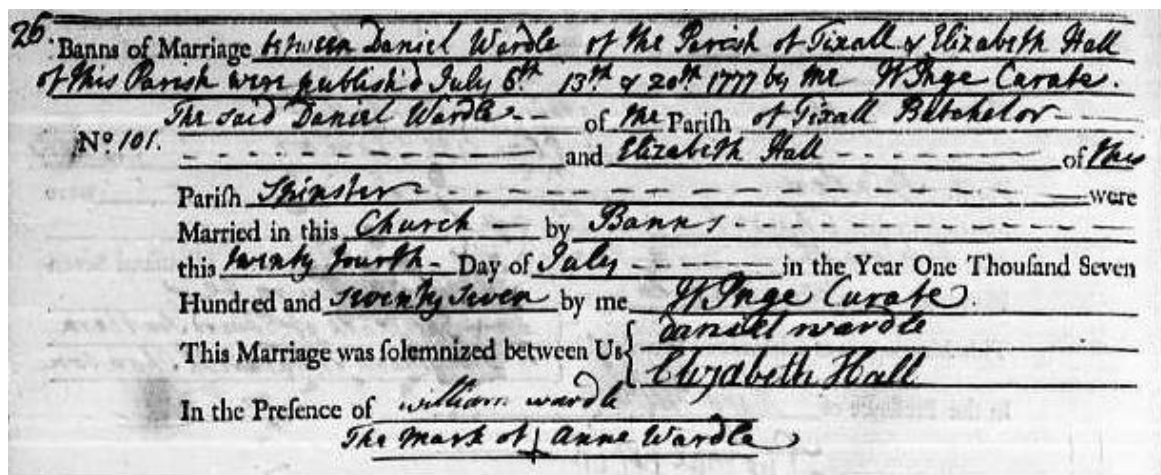 26 Banns of Marriage between Daniel Wardle of the Parish of Tixall & Elizabeth Hall
of this Parish were publish'd July 6th 13th & 20th 1777 by me W Inge Curate.
The said Daniel Wardle -- of the Parish of Tixall Batchelor
No 101. and Elizabeth Hall of this
Parish Spinster were
Married in this Church by Banns
this twenty fourth Day of July in the Year One Thousand Seven
Hundred and seventy seven by me W Inge Curate.
This Marriage was solemnized between Us { daniel wardle
Elizabeth Hall
In the Presence of william wardle
The mark of + Anne Wardle